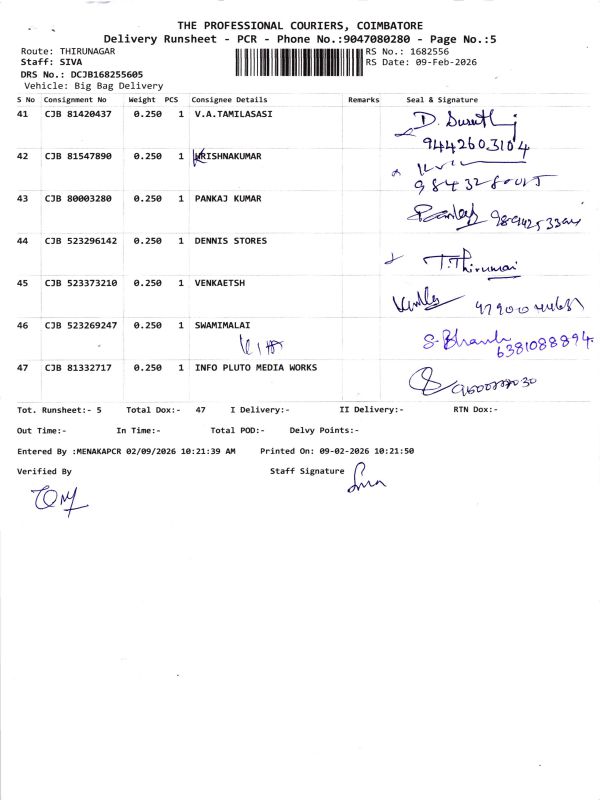 THE PROFESSIONAL COURIERS, COIMBATORE
Delivery Runsheet - PCR - Phone No.:9047080280 - Page No.:5
Route: THIRUNAGAR RS No.: 1682556
Staff: SIVA RS Date: 09-Feb-2026
DRS No.: DCJB168255605
Vehicle: Big Bag Delivery
S No Consignment No Weight PCS Consignee Details Remarks Seal & Signature
41 CJB 81420437 0.250 1 V.A.TAMILASASI
9442603104
42 CJB 81547890 0.250 1 KRISHNAKUMAR
43 CJB 80003280 0.250 1 PANKAJ KUMAR
44 CJB 523296142 0.250 1 DENNIS STORES
T.Thirumai
45 CJB 523373210 0.250 1 VENKAETSH
46 CJB 523269247 0.250 1 SWAMIMALAI
6381088894
47 CJB 81332717 0.250 1 INFO PLUTO MEDIA WORKS
Tot. Runsheet:- 5 Total Dox:- 47 I Delivery:- II Delivery:- RTN Dox:-
Out Time:- In Time:- Total POD:- Delvy Points:-
Entered By :MENAKAPCR 02/09/2026 10:21:39 AM Printed On: 09-02-2026 10:21:50
Verified By Staff Signature